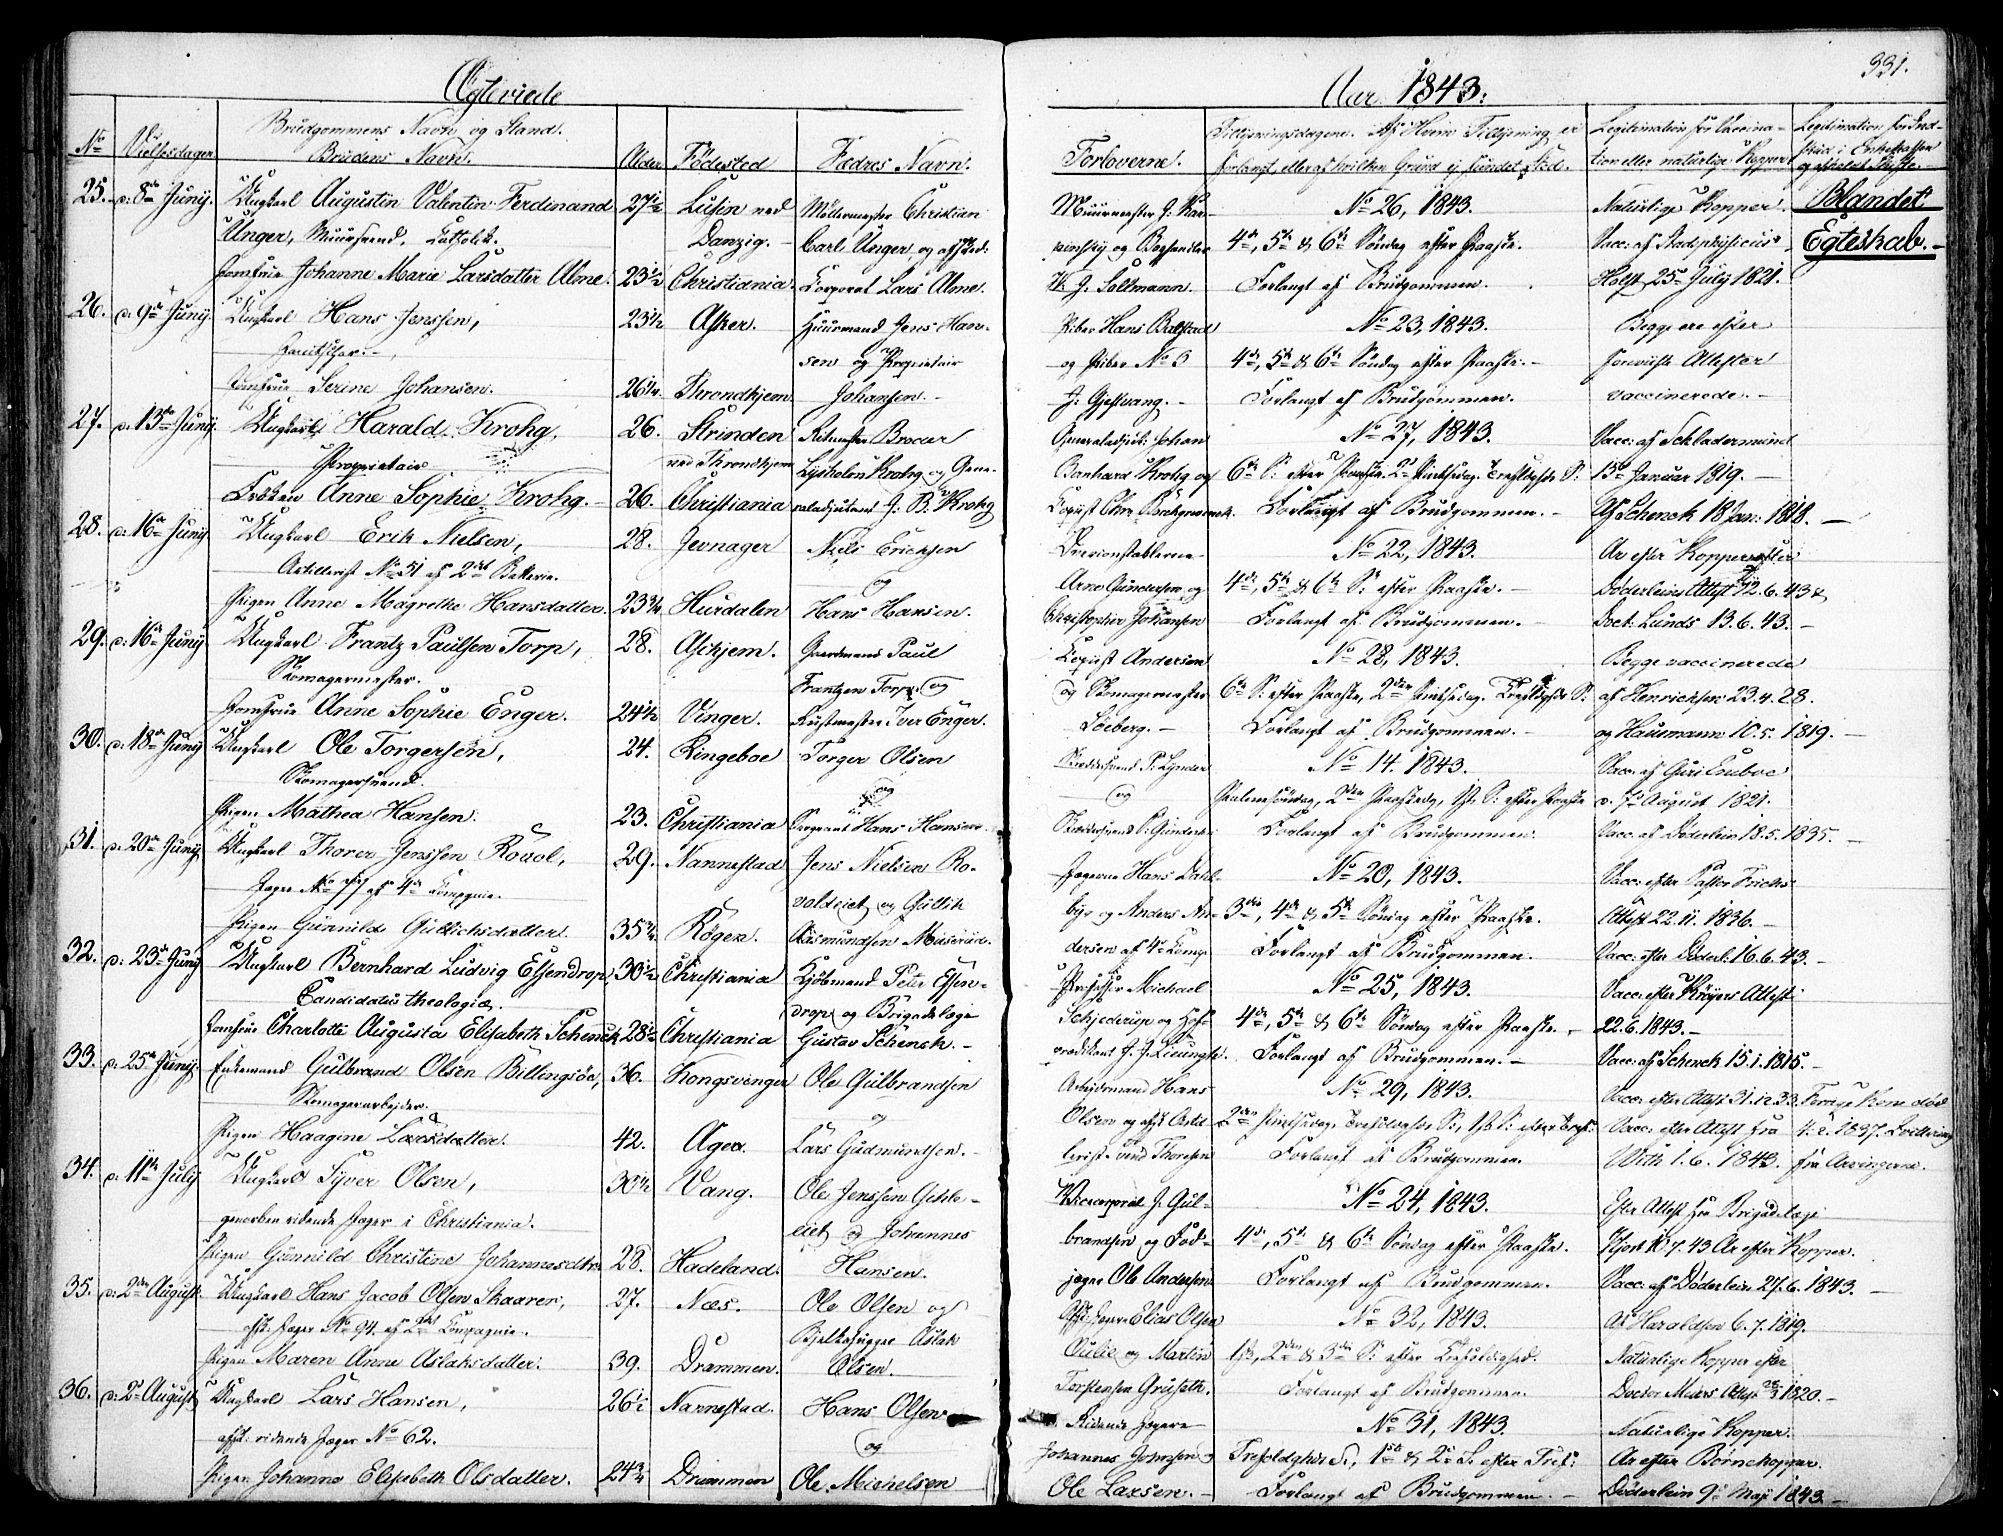 331.
Ægteviede
Aar 1843.
No
Vielsesdagen
Brudgommens Navn og Stand.
Brudens Navn.
Alder
Födested
Fædres Navn.
Forloverne.
Tillysningsdagene. Af Hvem Tillysning er
forlangt, eller af hvilken Grund ej fundet Sted.
Legitimation for Vaccina-
tion eller naturlige Kopper
25. d: 8de Juny. Ungkarl Augustin Valentin Ferdinand 27½ Lusin ved Möllermester Christian
Unger, Muursvend, Catholik. Danzig. Carl Unger og afsked:
Jomfrue Johanne Marie Larsdatter Alme. 23½ Christiania. Corporal Lars Alme.
26. d: 9de Juny. Ungkarl Hans Jenssen, 23½ Asker. Huusmand Jens Han-
sen og Proprietair
Jomfrue Serine Johansen. 26¼ Throndhjem Johansen.
27. d: 13de Juny. Ungkarl Harald Krohg, 26. Strinden Ritmester Brocar
Proprietair ved Throndhjem Lysholm Krohg og Gene-
Fröken Anne Sophie Krohg. 26. Christiania raladjutant G. B. Krohg
28. d: 16de Juny Ungkarl Erik Nielsen, 28. Jevnager Niels Ericksen
Artillerist No 51 af 2det Batterie. og
Pigen Anne Magrethe Hansdatter. 23¾ Hurdalen Hans Hansen.
29. d: 16de Juny Ungkarl Frantz Paulsen Torp, 28. Aschjem. Gaardmand Paul
Skomagermester. Frantzen Torp og
Jomfrue Anne Sophie Enger. 24½ Vinger. Iver Enger.
30. d: 18de Juny Ungkarl Ole Torgersen, 24. Ringeboe Torger Olsen
Skomagersvend. og
Pigen Mathea Hansen. 23. Christiania Sergeant Hans Hansen
31. d: 20de Juny Ungkarl Thorer Jenssen Rovol, 29. Nannestad Jens Nielsen Ro-
Jæger No 77 af 4de Compagnie. voldeiet og Gullik
Pigen Gunnild Gullichsdatter. 35¾ Röger. Asmundsen
32. d: 23de Juny Ungkarl Bernhard Ludvig Essendrop, 30½ Christiania Kjöbmand Peter Essen-
Candidatus theologiæ. drop og Brigadelæge
Jomfrue Charlotte Augusta Elisabeth Schenck 28½ Christiania Gustav Schenck.
33. d: 25de Juny. Enkemand Gulbrand Olsen Billingsöe, 36. Kongsvinger Ole Gulbrandsen
Skomagerarbejder. og
Pigen Haagine Larsdatter. 42. Ager. Lars Gudmundsen.
34. d: 11te July Ungkarl Syver Olsen, 30½ Vang. Ole Jenssen Gehle-
generben ridende Jæger i Christiania. eiet og Johannes
Pigen Gunnild Christine Johannesdtr 28. Hadeland. Hansen.
35. d: 2den August Ungkarl Hans Jacob Olsen Skaarer, 27. Næs. Ole Olsen og
afsk: Jæger No 94. af 2det Compagnie. Bjelkehugger Aslak
Pigen Maren Anne Aslaksdatter. 39. Drammen. Olsen.
36. d: 2d August Ungkarl Lars Hansen, 26½ Nannestad. Hans Olsen
afsk: ridende Jæger No 62. og
Pigen Johanne Elisabeth Olsdatter. 24¾ Drammen Ole Michelsen
Muurmester J. Kar- No 26, 1843. Naturlige Kopper. Blandet
pinsky og Boghandler 4de, 5te & 6te Söndag efter Paaske. Vacc: af Stadsphysicus Egteskab.
W. J. Soltmann. Forlangt af Brudgommen. Holst 25de July 1821.
Piber Hans Balstad No 23, 1843. Begge ere efter
og Piber No 3 4de, 5te & 6te Söndag efter Paaske. foreviste Attester
J. Gjestvang. Forlangt af Brudgommen. vaccinerede.
Generaladjut: Johan No 27, 1843. Vacc: af Schladermund
Bernhard Krohg og 6te S: efter Paaske, 2d Pintsedag, Trefoldigheds S: 13de Januar 1819.
Forlangt af Brudgommen. Af Schenck 18 Jan: 1818.
No 22, 1843. Ar efter Kopper efter
Arne Gundersen og 4de, 5te & 6te S: efter Paaske. Döderleins Attest 12.6.43 &
Christopher Johansen Forlangt af Brudgommen. Doct: Lunds 13.6.43.
Copist Andersen No 28, 1843. Begge vaccinerede
og Skomagermester 6te S: efter Paaske, 2den Pintsedag, Trefoldigheds S: af Henrichsen 23.4.28.
Söeberg. Forlangt af Brudgommen. og Hausmann 10.5.1819.
Skræddersvend P: Lynder No 14. 1843. Vacc: af Guri
og Palmesöndag, 2den Paaskedag, 1ste S: efter Paaske d. 7de August 1821.
Forlangt af Brudgommen. Vacc: af Döderlein 18.5.1835.
Jægerne Hans Dahl- No 20, 1843. Vacc: efter Pastor Frichs
by og Anders An- 3die, 4de & 5te Söndag efter Paaske. Attest 22.11.1836.
dersen af 4de Comp: Forlangt af Brudgommen. Vacc: efter Döderl: 16.6.43.
Professor Michael No 25, 1843. Vacc: efter Kröyers Attest
Schjederup og Hof- 4de, 5te & 6te Söndag efter Paaske. 22.6.1843.
prædikant J. J. Forlangt af Brudgommen. Vacc: af Schenck 15.1.1815.
Arbejdsmand Hans No 29, 1843. Vacc: efter Attest 31.12.33. Forrige Kone död
Olsen og afsk: 2den Pintsedag, Trefoldigheds S:, 1ste S: efter Tref: Vacc: efter Attest fra 4.2.1837. Qvittering
Thoresen Forlangt af Brudgommen. With 1.6.1843. fra Arvingerne.
Vicecorporal J. Gul- No 24, 1843. Efter Attest fra Brigadelæge
brandsen og Fod- 4de, 5te & 6te Söndag efter Paaske. Hjort 10.7.43 Ar efter Kopper.
jæger Ole Andersen Forlangt af Brudgommen. Vacc: af Döderlein 27.6.1843.
Afsk: Jæger Elias Olsen No 32, 1843. Af Haraldsen 6.7.1819.
og Martin 1ste, 2den & 3die S: efter Trefoldighed. Naturlige Kopper efter
Torstensen Gruseth. Forlangt af Brudgommen. Doctor Attest 1820.
Ridende Jægere No 31, 1843. Naturlige Kopper.
Johannes Johnsen & Trefoldigheds S:, 1ste & 2d S: efter Tref: Ar efter Börnekopper.
Ole Larsen. Forlangt af Brudgommen. Döderlein 9de Maj 1843.